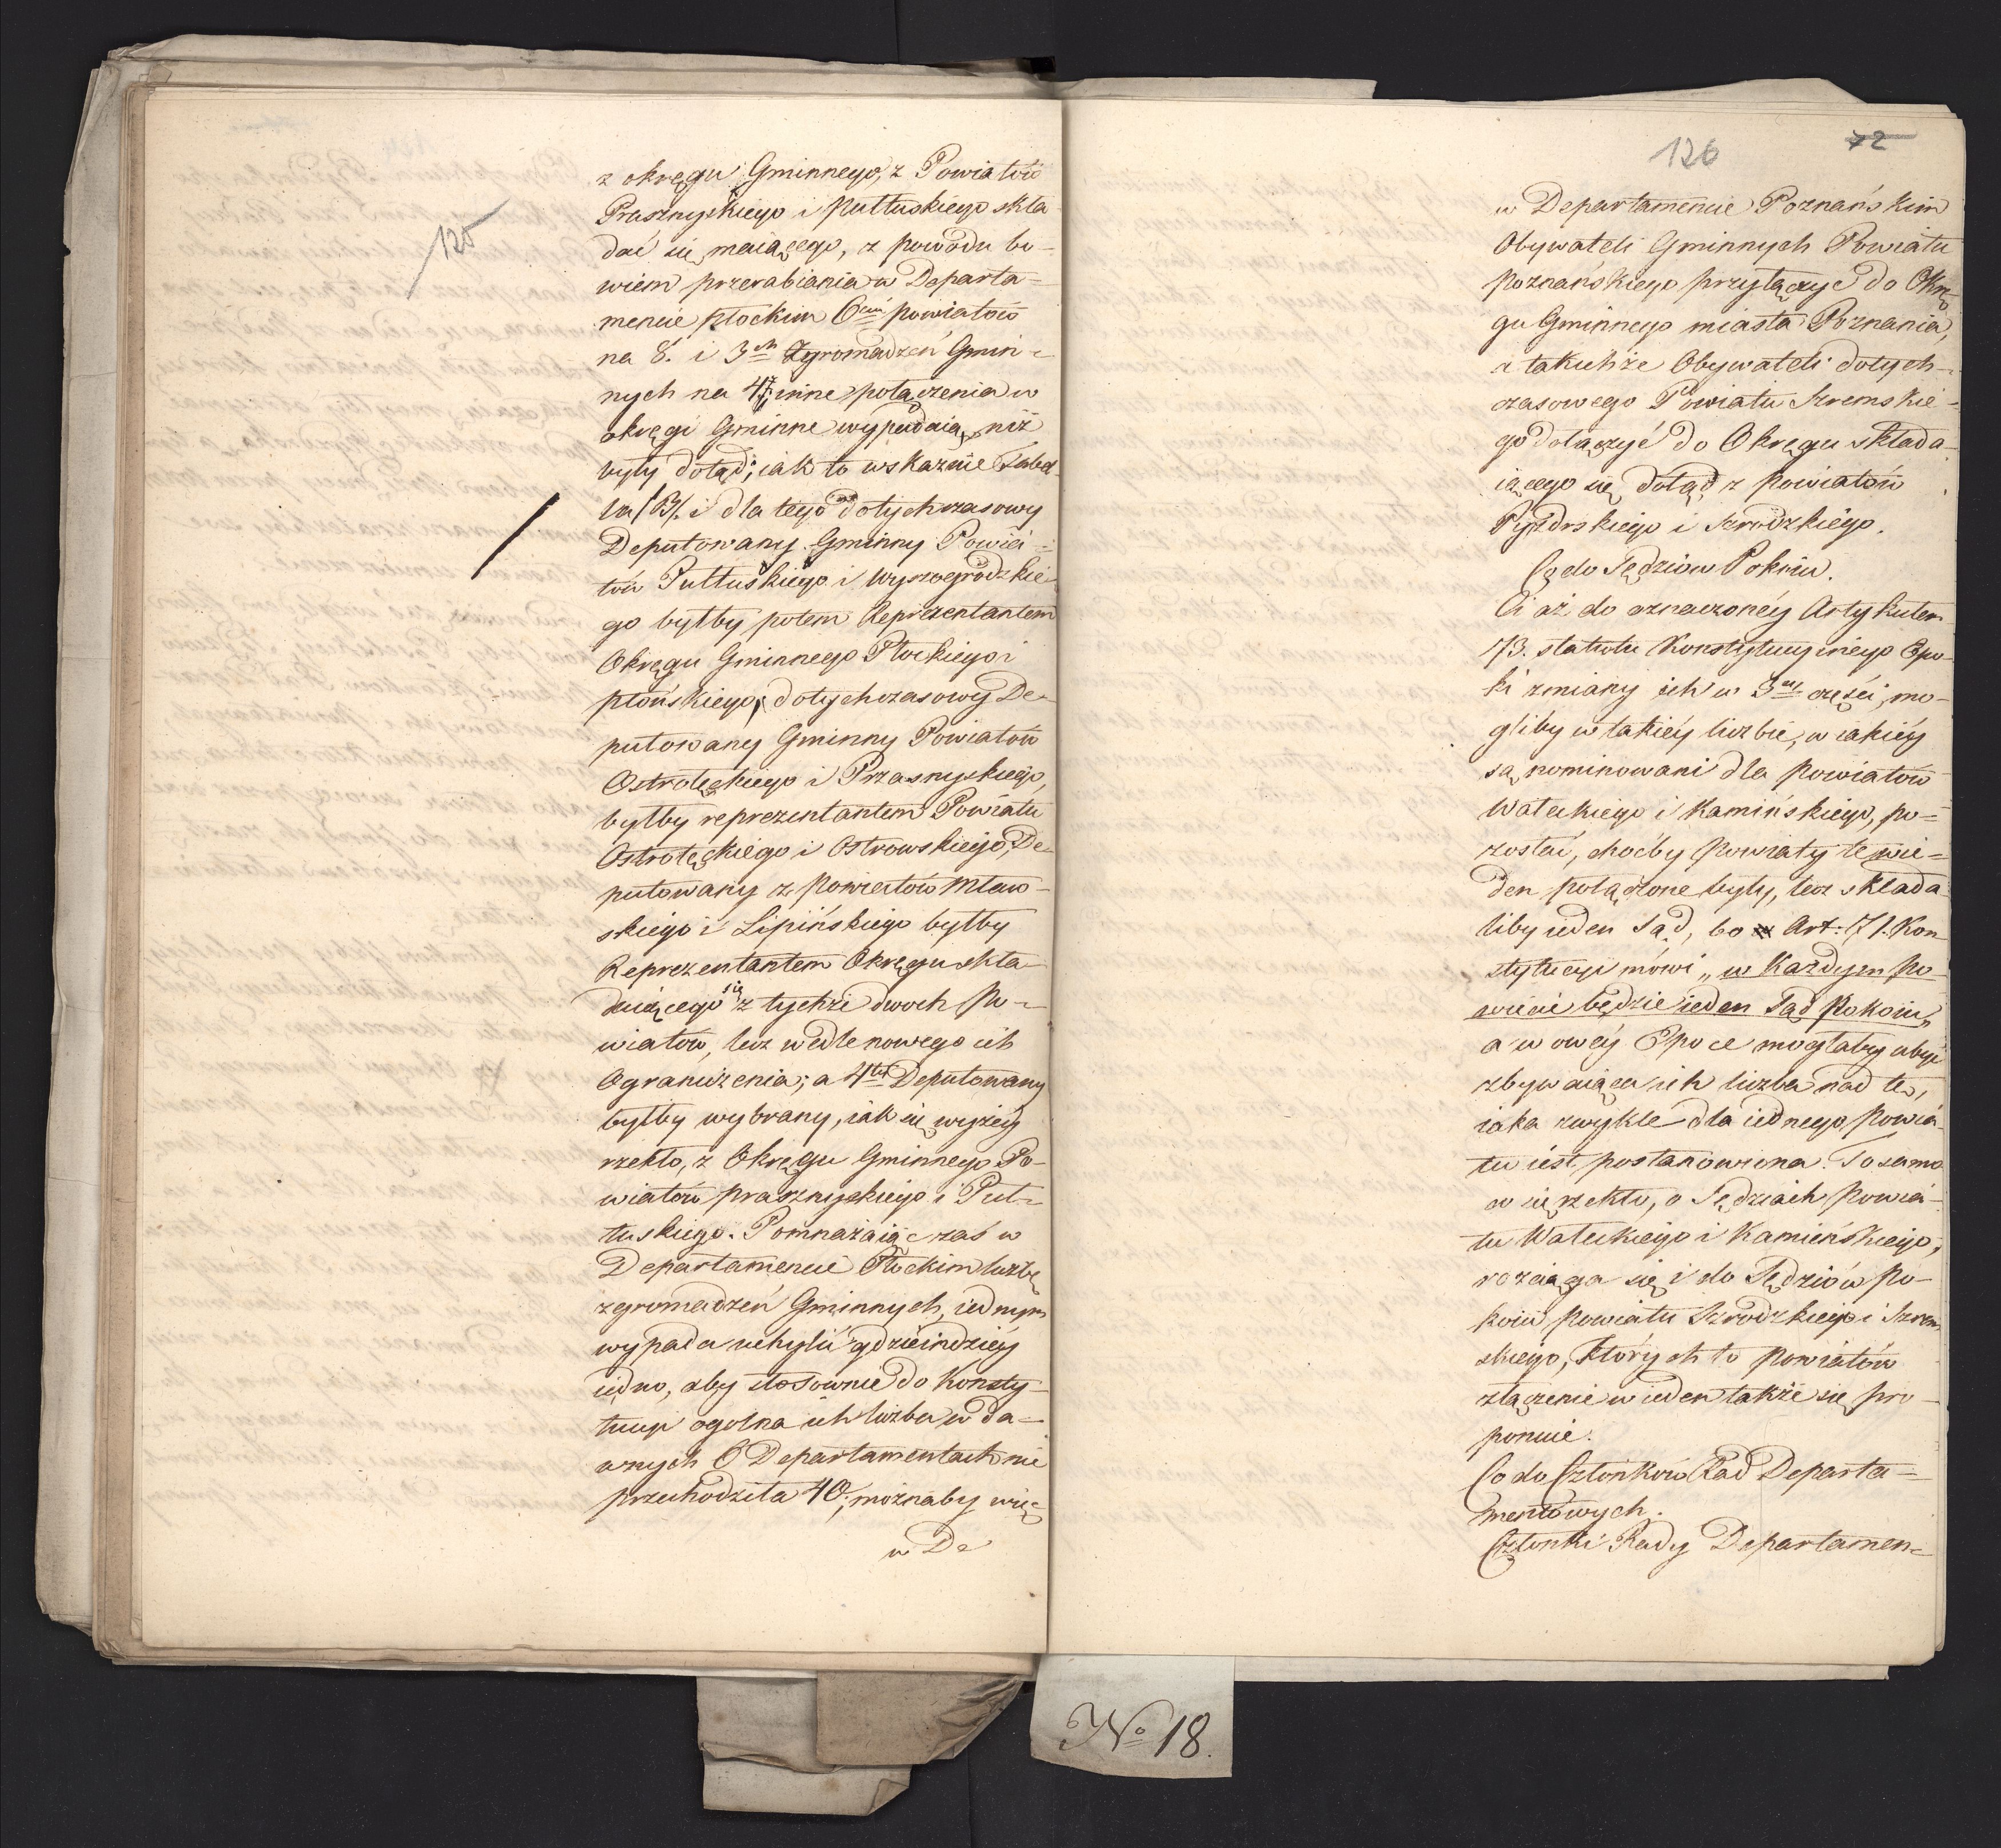 125
z okręgu Gminnego, z Powiatów
Prasznyskiego i Pułtuskiego skła
dać się maiącego, z powodu bo-
wiem przerabiania w Departa=
mencie płockim 6ciu powiatów
na 8. i 3ch Zgromadzeń Gmin=
nych na 4, inne połączenia w
okręgi Gminne wypadaią, niż
były dotąd; iak to wskaznie Tabel-
la /B/. i dla tego dotychczasowy
Deputowany Gminny Powia=
tów Pułtuskiego i Wyszogrodzkie-
go byłby potem Reprezentantem
Okręgu Gminnego Płockiego i
płońskiego, dotychczasowy De-
putowany Gminny Powiatów
Ostrołęckiego i Przasnyskiego,
byłby reprezentantem Powiatu
Ostrołęckiego i Ostrowskiego, De-
putowany z Powiatów Mław-
skiego i Lipińskiego byłby
Reprezentantem Okręgu skła-
daiącego się z tychże dwoch Po=
wiatów, lecz wedle nowego ich
Ograniczenia; a 4ty Deputowany
byłby wybrany, iak się wyżéy
rzekło, z Okręgu Gminnego Po-
wiatów prasznyskiego i Puł=
tuskiego. Pomnażaiąc zaś w
Departamencie Płockim liczbę
zgromadzeń Gminnych, iednym
wypada uchylić gdzieindziéy
iedno, aby stosownie do Konsty-
tucyi ogolna ich liczba w da=
wnych 6 Departamentach nie
przechodziła 40; możnaby więc
w De
126
72
w Departamencie Poznańskim
Obywateli Gminnych Powiatu
poznańskiego przyłączyć do Okrę
gu Gminnego miasta Poznania,
i takichże Obywateli dotych-
czasowego Powiatu Szremskie-
go dołączyć do Okręgu składa-
iącego się dotąd z Powiatów
Pyzdrskiego i Szrodzkiego.
Co do Sędziow Pokoiu.
Ci aż do oznaczonéy Artykułem
73. statutu Konstytucyinego Epo-
ki zmiany ich w 3ey części, mo-
gliby w takiéy liczbie, w iakiéy
są nominowani dla Powiatów
Wałeckiego i Kamińskiego, po=
zostać, choćby Powiaty te w ie=
den połączone były, lecz składa
liby ieden Sąd, bo Art: 71. Kon
stytucyi mówi „w Każdym Po-
wiecie będzie ieden Sąd Pokoiu„
a w owéy Epoce mogłaby ubyć
zbywaiąca ich liczba nad tę,
iaka zwykle dla iednego Powia-
tu iest postanowiona. To samo
co się rzekło, o Sędziach Powia-
tu Wałeckiego i Kamieńskiego,
rozciąga się i do Sędziów Po-
koiu Powiatu Szrodzkiego i Szrem
skiego, których to Powiatów
złączenie w ieden także się pro-
ponuie.
Co do Członków Rad Departa=
mentowych.
Członki Rady Departamen=
No 18.